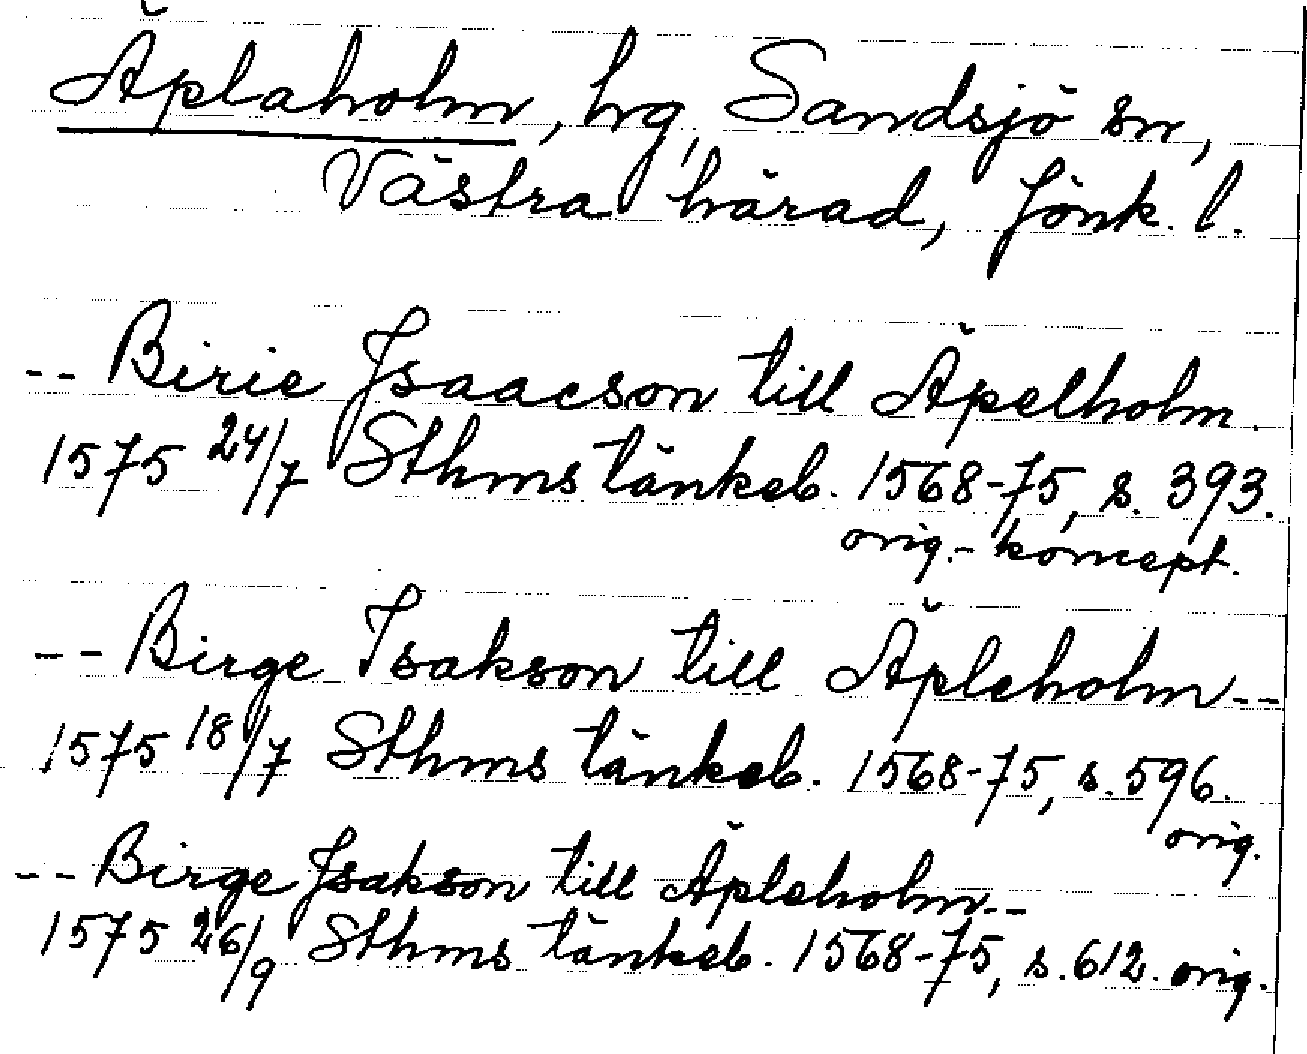 Äplaholm, hg, Sandsjö sn,
Västra härad, Jönk. l.
-- Birie Isaacson till Äpelholm.
1575 24/7 Sthms tänkeb. 1568-75, s. 393.
orig.- koncept.
-- Birge Isakson till Äpleholm --
1575 18/7 Sthms tänkeb. 1568-75, s. 596.
orig.
-- Birge Isakson till Äpleholm --
1575 26/9 Sthms tänkeb. 1568-75, s. 612. orig.